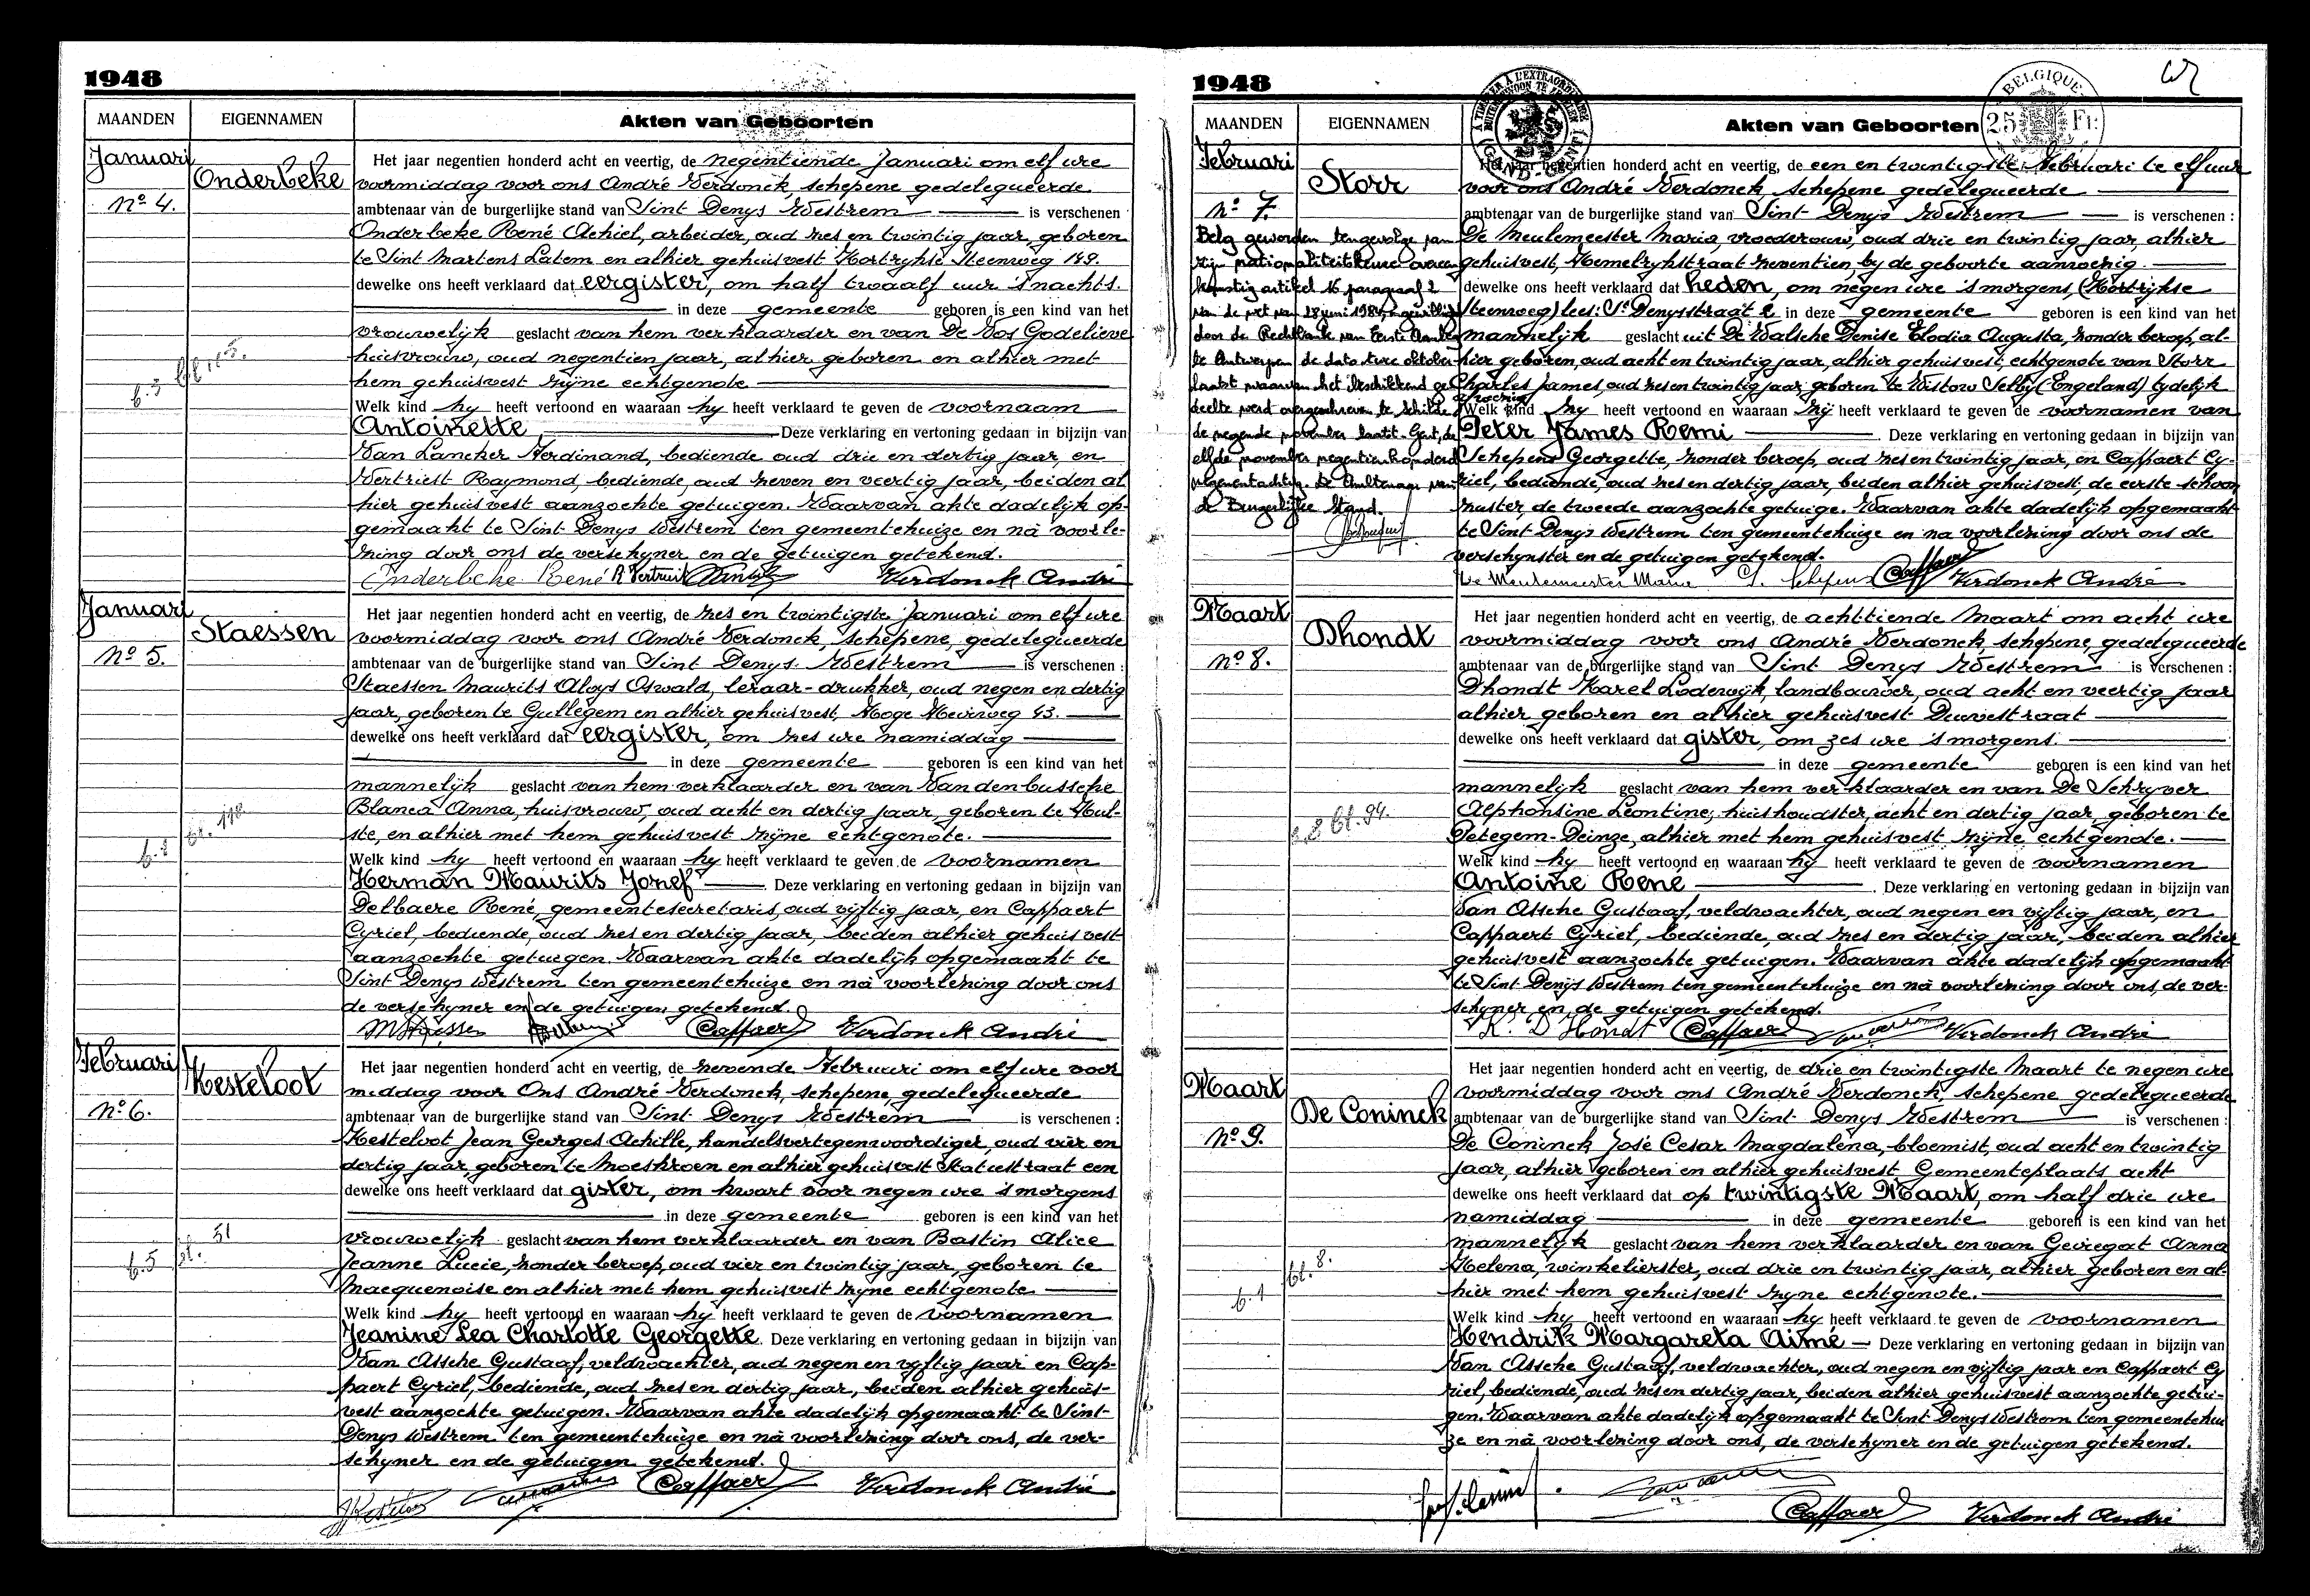 1948
MAANDEN
EIGENNAMEN
Akten van Geboorten
Januari
Onderbeke
Nº 4.
Het jaar negentien honderd acht en veertig, de negentiende Januari om elf ure
voormiddag voor ons André Verdonck, schepene gedelegueerde
ambtenaar van de burgerlijke stand van Sint Denys Westrem is verschenen
Onderbeke René Achiel, arbeider, oud zes en twintig jaar, geboren
te Sint Martens Latem en alhier gehuisvest Kortrykse Steenweg 149.
dewelke ons heeft verklaard dat eergister, om half twaalf uur 's nachts.
in deze gemeente geboren is een kind van het
vrouwelijk geslacht van hem verklaarder en van De Vos Godelieve
huisvrouw, oud negentien jaar, alhier geboren en alhier met
hem gehuisvest zijne echtgenote
Welk kind hy heeft vertoond en waaraan hy heeft verklaard te geven de voornaam
Antoinette Deze verklaring en vertoning gedaan in bijzijn van
Van Lancker Ferdinand, bediende oud drie en dertig jaar, en
Vertriest Raymond, bediende, oud zeven en veertig jaar, beiden al
hier gehuisvest aanzochte getuigen. Waarvan akte dadelijk op-
gemaakt te Sint Denys Westrem ten gemeentehuize en nà voorle-
zing door ons de verschyner en de getuigen getekend.
Onderbeke René R Vertriest Verdonck André
Januari
Staessen
Nº 5.
Het jaar negentien honderd acht en veertig, de zes en twintigste Januari om elf ure
voormiddag voor ons André Verdonck, schepene, gedelegueerde
ambtenaar van de burgerlijke stand van Sint Denys Westrem is verschenen :
Staessen Maurits Aloys Oswald, leraar-drukker, oud negen en dertig
jaar, geboren te Gullegem en alhier gehuisvest, Hoge Heirweg 43.
dewelke ons heeft verklaard dat eergister, om zes ure namiddag
in deze gemeente geboren is een kind van het
mannelijk geslacht van hem verklaarder en van Vandenbussche
Blanca Anna, huisvrouw, oud acht en dertig jaar, geboren te Hul-
ste, en alhier met hem gehuisvest zijne echtgenote.
Welk kind hy heeft vertoond en waaraan hy heeft verklaard te geven de voornamen
Herman Maurits Jozef Deze verklaring en vertoning gedaan in bijzijn van
Delbaere René, gemeentesecretaris, oud vijftig jaar, en Cappaert
Cyriel, bediende, oud zes en dertig jaar, beiden alhier gehuisvest
aanzochte getuigen. Waarvan akte dadelijk opgemaakt te
Sint Denys Westrem ten gemeentehuize en nà voorlezing door ons
de verschyner en de getuigen getekend.
MStaessen Cappaert Verdonck André
Februari
Kesteloot
Nº 6.
Het jaar negentien honderd acht en veertig, de zevende Februari om elf ure voor
middag voor Ons André Verdonck, schepene, gedelegueerde
ambtenaar van de burgerlijke stand van Sint Denys Westrem is verschenen :
Kesteloot Jean Georges Achille, handelsvertegenwoordiger, oud vier en
dertig jaar, geboren te Moeskroen en alhier gehuisvest Statiestraat een
dewelke ons heeft verklaard dat gister, om kwart voor negen ure 's morgens
in deze gemeente geboren is een kind van het
vrouwelijk geslacht van hem verklaarder en van Bastin Alice
Jeanne Lucie, zonder beroep, oud vier en twintig jaar, geboren te
Macquenoise en alhier met hem gehuisvest zijne echtgenote
Welk kind hy heeft vertoond en waaraan hy heeft verklaard te geven de voornamen
Jeanine Lea Charlotte Georgette. Deze verklaring en vertoning gedaan in bijzijn van
Van Assche Gustaaf, veldwachter, oud negen en vijftig jaar en Cap-
paert Cyriel, bediende, oud zes en dertig jaar, beiden alhier gehuis-
vest aanzochte getuigen. Waarvan akte dadelijk opgemaakt te Sint-
Denys Westrem ten gemeentehuize en nà voorlezing door ons, de ver-
schyner en de getuigen getekend.
Cappaert Verdonck André
1948
BELGIQUE
25 Fr:
MAANDEN
EIGENNAMEN
Akten van Geboorten
Februari
Storr
Nº 7.
Belg geworden tengevolge van
zijn nationaliteitskeuze overeen
komstig artikel 16 paragraaf 2
van de wet van 28 juni 1984, ingewilligd
door de Rechtbank van Eerste Aanleg
te Antwerpen de dato twee oktober
laatst waarvan het beschikkend ge
deelte werd overgeschreven te Schilde
de negende november laatst. Gent, de
elfde november negentienhonderd
negenentachtig. De Ambtenaar van
de Burgerlijke Stand.
Het jaar negentien honderd acht en veertig, de een en twintigste Februari te elf uur
voor ons André Verdonck, schepene gedelegueerde
ambtenaar van de burgerlijke stand van Sint Denys Westrem is verschenen :
De Meulemeester Maria, vroedvrouw, oud drie en twintig jaar, alhier
gehuisvest, Hemelrykstraat zeventien, by de geboorte aanwezig.
dewelke ons heeft verklaard dat heden, om negen ure 's morgens, (Kortrijkse
steenweg) lees: St Denysstraat 2 in deze gemeente geboren is een kind van het
mannelijk geslacht uit De Walsche Denise Elodia Augusta, zonder beroep, al-
hier geboren, oud acht en twintig jaar, alhier gehuisvest, echtgenote van Storr
Charles James, oud zes en twintig jaar geboren te Wistow Selby (Engeland) tydelijk
Welk kind zy heeft vertoond en waaraan zij heeft verklaard te geven de voornamen van
Peter James Remi Deze verklaring en vertoning gedaan in bijzijn van
Schepens Georgette, zonder beroep, oud zes en twintig jaar, en Cappaert Cy-
riel, bediende, oud zes en dertig jaar, beiden alhier gehuisvest, de eerste schoon
zuster, de tweede aanzochte getuige. Waarvan akte dadelijk opgemaakt
te Sint Denys Westrem ten gemeentehuize en na voorlezing door ons de
verschynster en de getuigen getekend.
De Meulemeester Maria G. Schepens Cappaert Verdonck André
Maart
Dhondt
Nº 8.
Het jaar negentien honderd acht en veertig, de achttiende Maart om acht ure
voormiddag voor ons André Verdonck, schepene, gedelegueerde
ambtenaar van de burgerlijke stand van Sint Denys Westrem is verschenen :
Dhondt Karel Lodewijk, landbouwer, oud acht en veertig jaar
alhier geboren en alhier gehuisvest Duivestraat
dewelke ons heeft verklaard dat gister, om zes ure 's morgens.
in deze gemeente geboren is een kind van het
mannelyk geslacht van hem verklaarder en van De Schryver
Alphonsine Leontine, huishoudster, acht en dertig jaar, geboren te
Petegem-Deinze, alhier met hem gehuisvest zijne echtgenode.
Welk kind hy heeft vertoond en waaraan hy heeft verklaard te geven de voornamen
Antoine Rene . Deze verklaring en vertoning gedaan in bijzijn van
Van Assche Gustaaf, veldwachter, oud negen en vijftig jaar, en
Cappaert Cyriel, bediende, oud zes en dertig jaar, beiden alhier
gehuisvest aanzochte getuigen. Waarvan akte dadelijk opgemaakt
te Sint Denijs Westrem ten gemeentehuize en nà voorlezing door ons, de ver-
schyner en de getuigen getekend.
K. D'Hondt Cappaert Verdonck André
Maart
De Coninck
Nº 9.
Het jaar negentien honderd acht en veertig, de drie en twintigste Maart te negen ure
voormiddag voor ons André Verdonck, schepene gedelegueerde
ambtenaar van de burgerlijke stand van Sint Denys Westrem is verschenen :
De Coninck José Cesar Magdalena, bloemist, oud acht en twintig
jaar, alhier geboren en alhier gehuisvest Gemeenteplaats acht
dewelke ons heeft verklaard dat op twintigste Maart, om half drie ure
namiddag in deze gemeente geboren is een kind van het
mannelyk geslacht van hem verklaarder en van Geiregat Anna
Helena, winkelierster, oud drie en twintig jaar, alhier geboren en al-
hier met hem gehuisvest zyne echtgenote.
Welk kind hy heeft vertoond en waaraan hy heeft verklaard te geven de voornamen
Hendrik Margareta Aimé Deze verklaring en vertoning gedaan in bijzijn van
Van Assche Gustaaf, veldwachter, oud negen en vijftig jaar en Cappaert Cy
riel, bediende, oud zes en dertig jaar, beiden alhier gehuisvest aanzochte getui-
gen. Waarvan akte dadelijk opgemaakt te Sint Denys Westrem ten gemeentehui
ze en nà voorlezing door ons, de verschyner en de getuigen getekend.
Cappaert Verdonck André